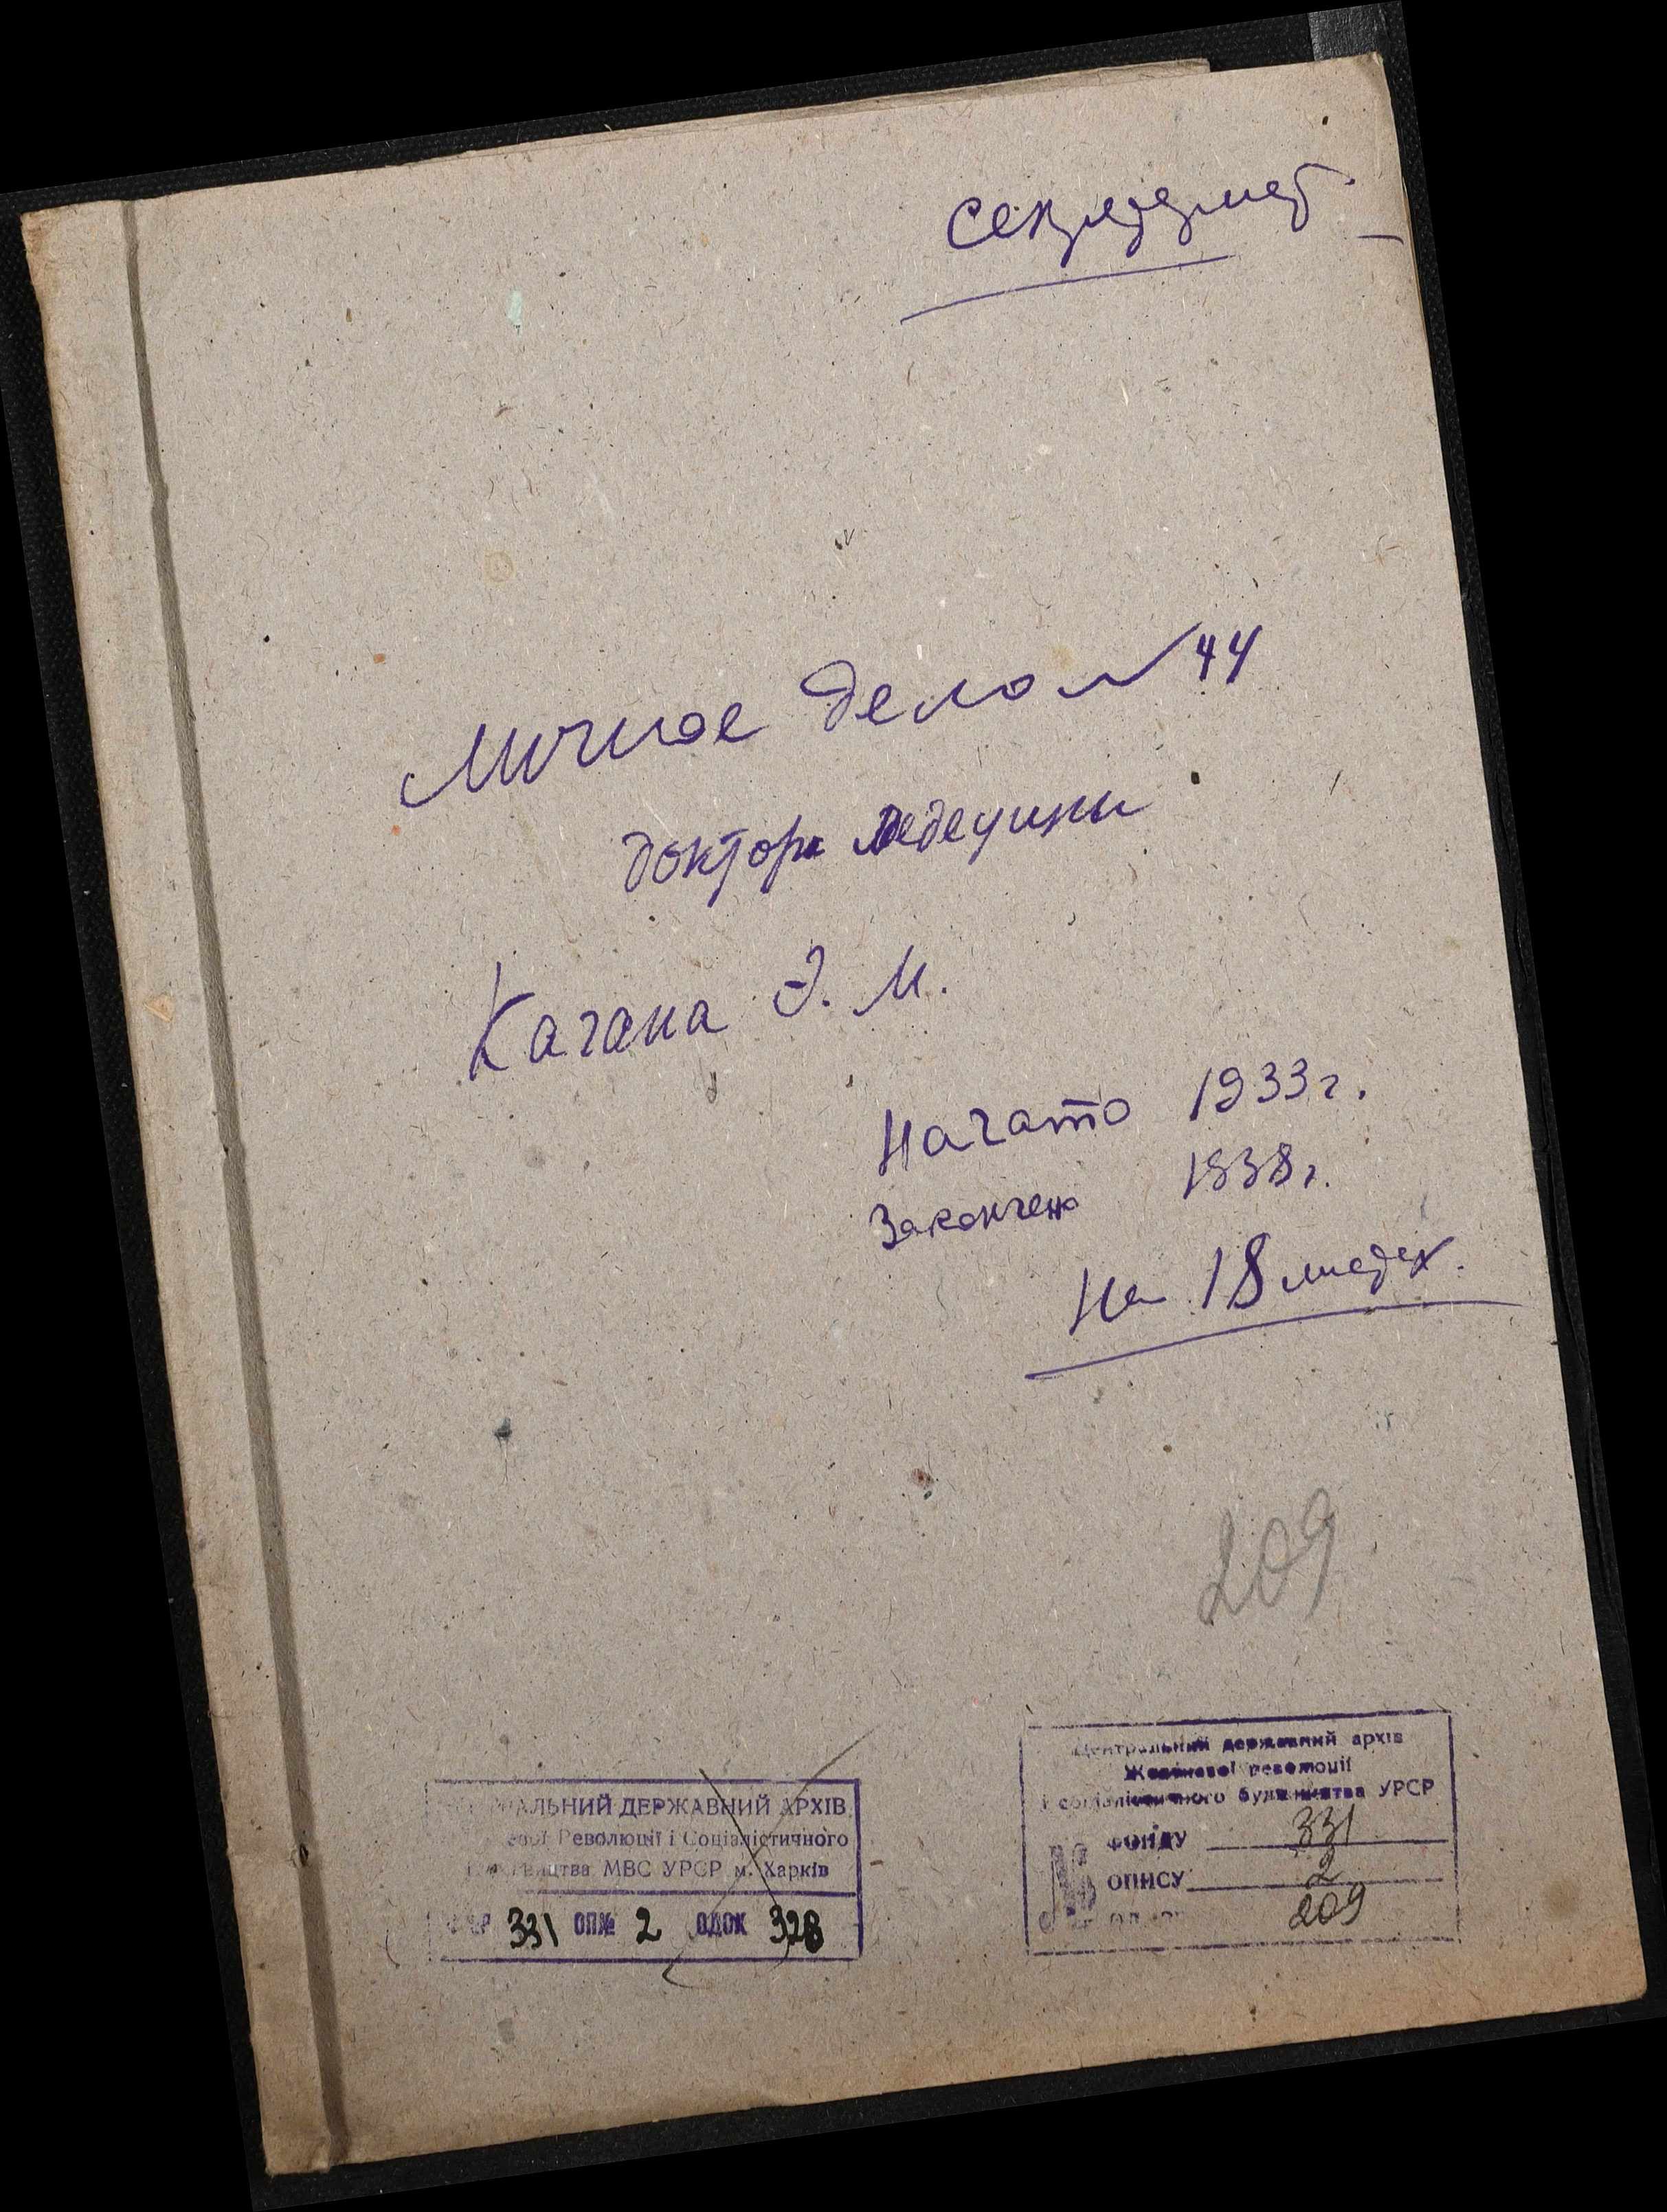 Личное дело № 44
доктора медецины
Кагана Э. М.
Начато 1933 г.
Закончено 1938 г.
На 18 листах.
209
ДЕРЖАВНИЙ АРХІВ
Революції і Соціалістичного
МВС УРСР м. Харків
331 ОП№ 2 ОДОК 328
Центральний державний архів
Жовтневої революції
і соціалістичного будівництва УРСР
№ ФОНДУ 331
ОПИСУ 2
209